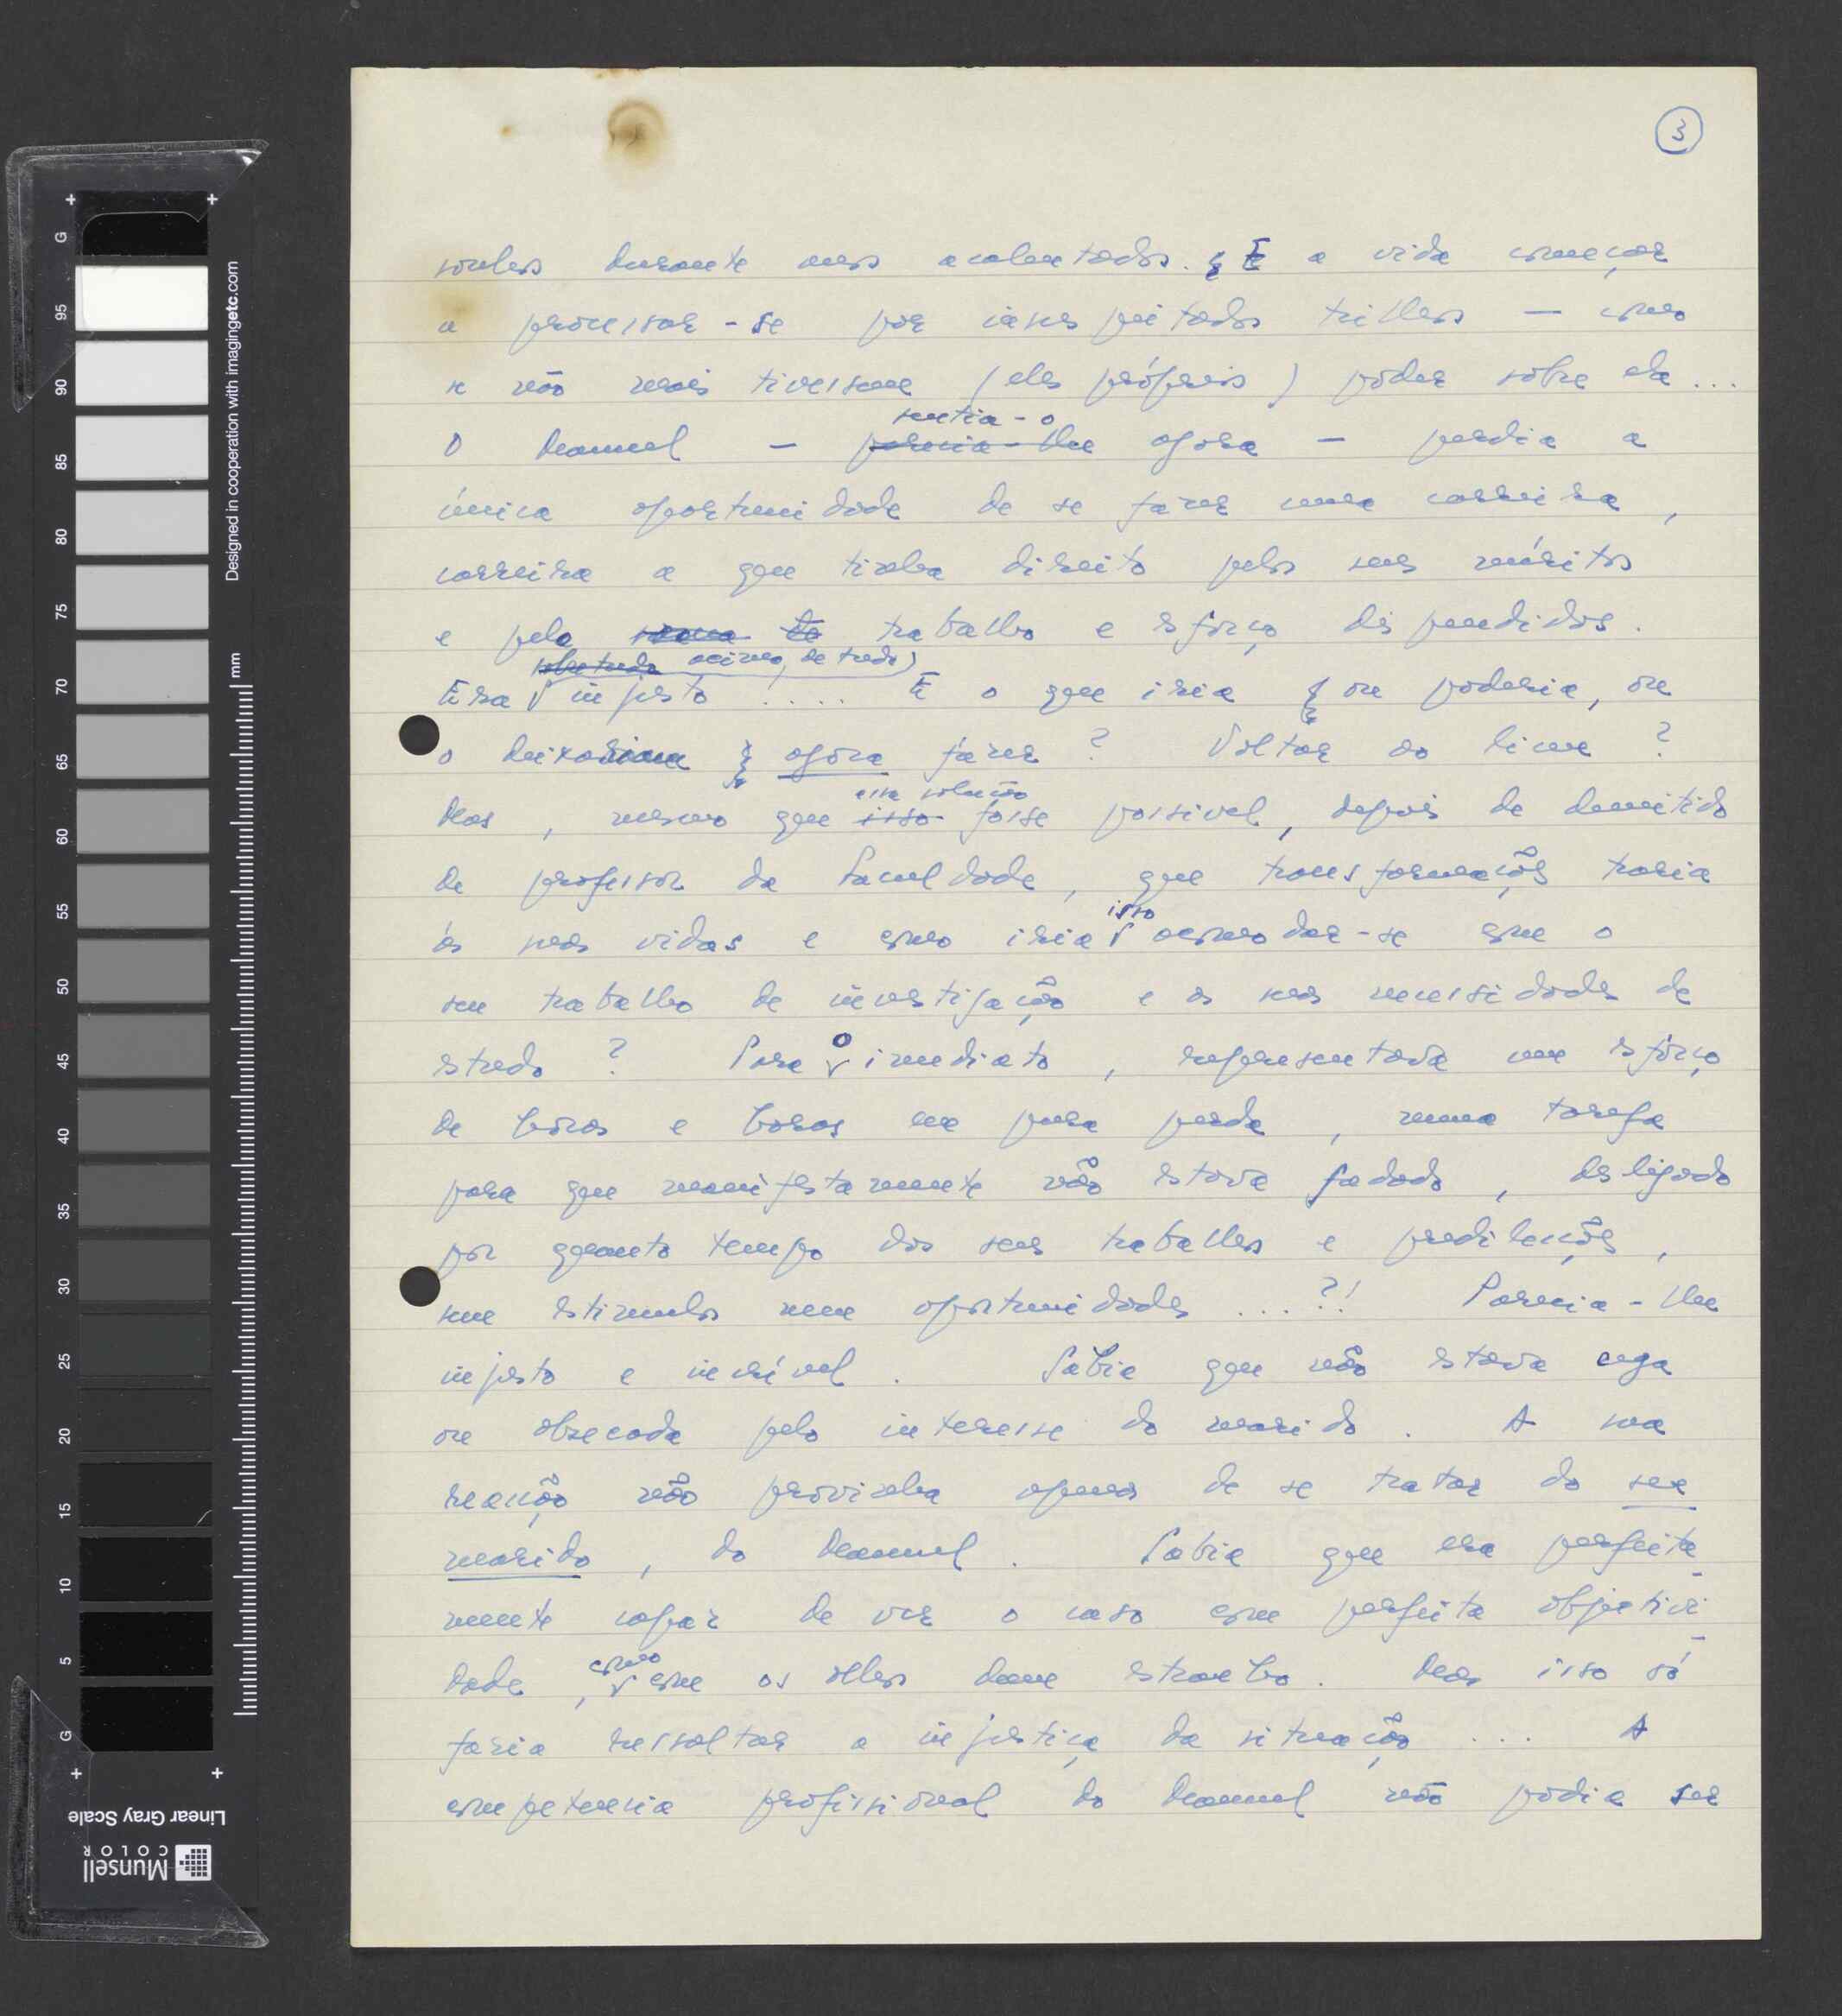 3
sonhos durante anos acalentados. E a vida começar
a processar-se por insuspeitados trilhos — como
se não mais tivessem (eles próprios) poder sôbre ela...
sentia-o
O Manuel — parecia-lhe agora — perdia a
única oportunidade de se fazer uma carreira,
carreira a que tinha direito pelos seus méritos
e pelo trabalho e esfôrço dispendidos.
sobretudo acima, de tudo)
Era injusto ..... E o que iria ou poderia, ou
o deixariam agora fazer? Voltar ao liceu?
essa solução
Mas, mesmo que isso fosse possivel, depois de demitido
de professor da Faculdade, que transformações traria
isso
às suas vidas e como iria acomodar-se com o
seu trabalho de investigação e as suas necessidades de
estudo? Para o imediato, representava um esfôrço
de horas e horas em pura perda, numa tarefa
para que manifestamente não estava fadado, desligado
por quanto tempo dos seus trabalhos e predilecções,
sem estimulos nem oportunidades ...?! Parecia-lhe
injusto e incrível. Sabia que não estava cega
ou obsecada pelo interesse do marido. A sua
reacção não provinha apenas de se tratar do seu
marido, do Manuel. Sabia que era perfeita-
mente capaz de ver o caso com perfeita objectivi-
como
dade, com os olhos dum estranho. Mas isso só
faria ressaltar a injustiça da situação ... A
competencia profissional do Manuel não podia ser
Designed in cooperation with imagingetc.com
mm
G
95
90
85
80
75
70
65
60
55
50
45
40
35
30
25
20
15
10
5
G
Linear Gray Scale
Munsell
COLOR